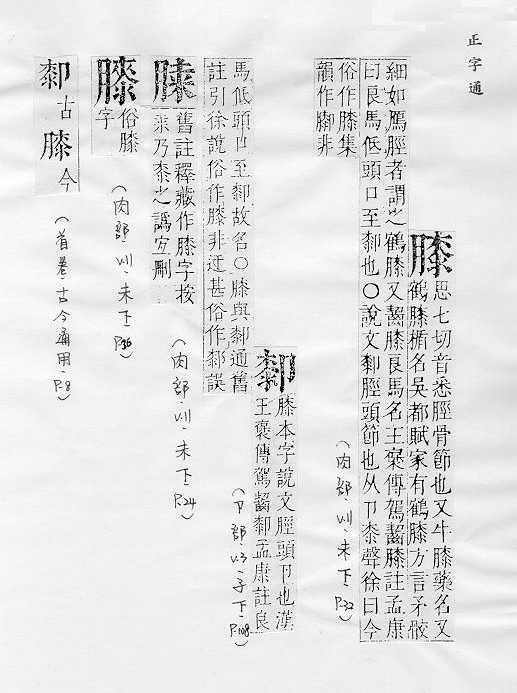 正字通
膝 思七切音悉脛骨節也又牛膝藥名又
鶴膝楯名吳都賦家有鶴膝方言矛骹
細如鴈脛者謂之鶴膝又齧膝良馬名王襃傳駕齧膝註孟康
曰良馬低頭口至厀也〇說文厀脛頭節也从卪桼聲徐曰今
俗作膝集
韻作𦠿非
(肉部·VII·未下·P.32)
厀 膝本字說文脛頭卪也漢
王襃傳駕齧厀孟康註良
馬低頭口至厀故名〇膝與厀通舊
註引徐說俗作膝非迂甚俗作厀誤
(卩部·V.3·子下·P.108)
舊註釋藏作膝字按
桼乃桼之譌宜刪
(肉部·VII·未下·P.24)
俗膝
字
(肉部·VII·未下·P.36)
厀 古 膝 今
(首卷·古今通用·P.8)